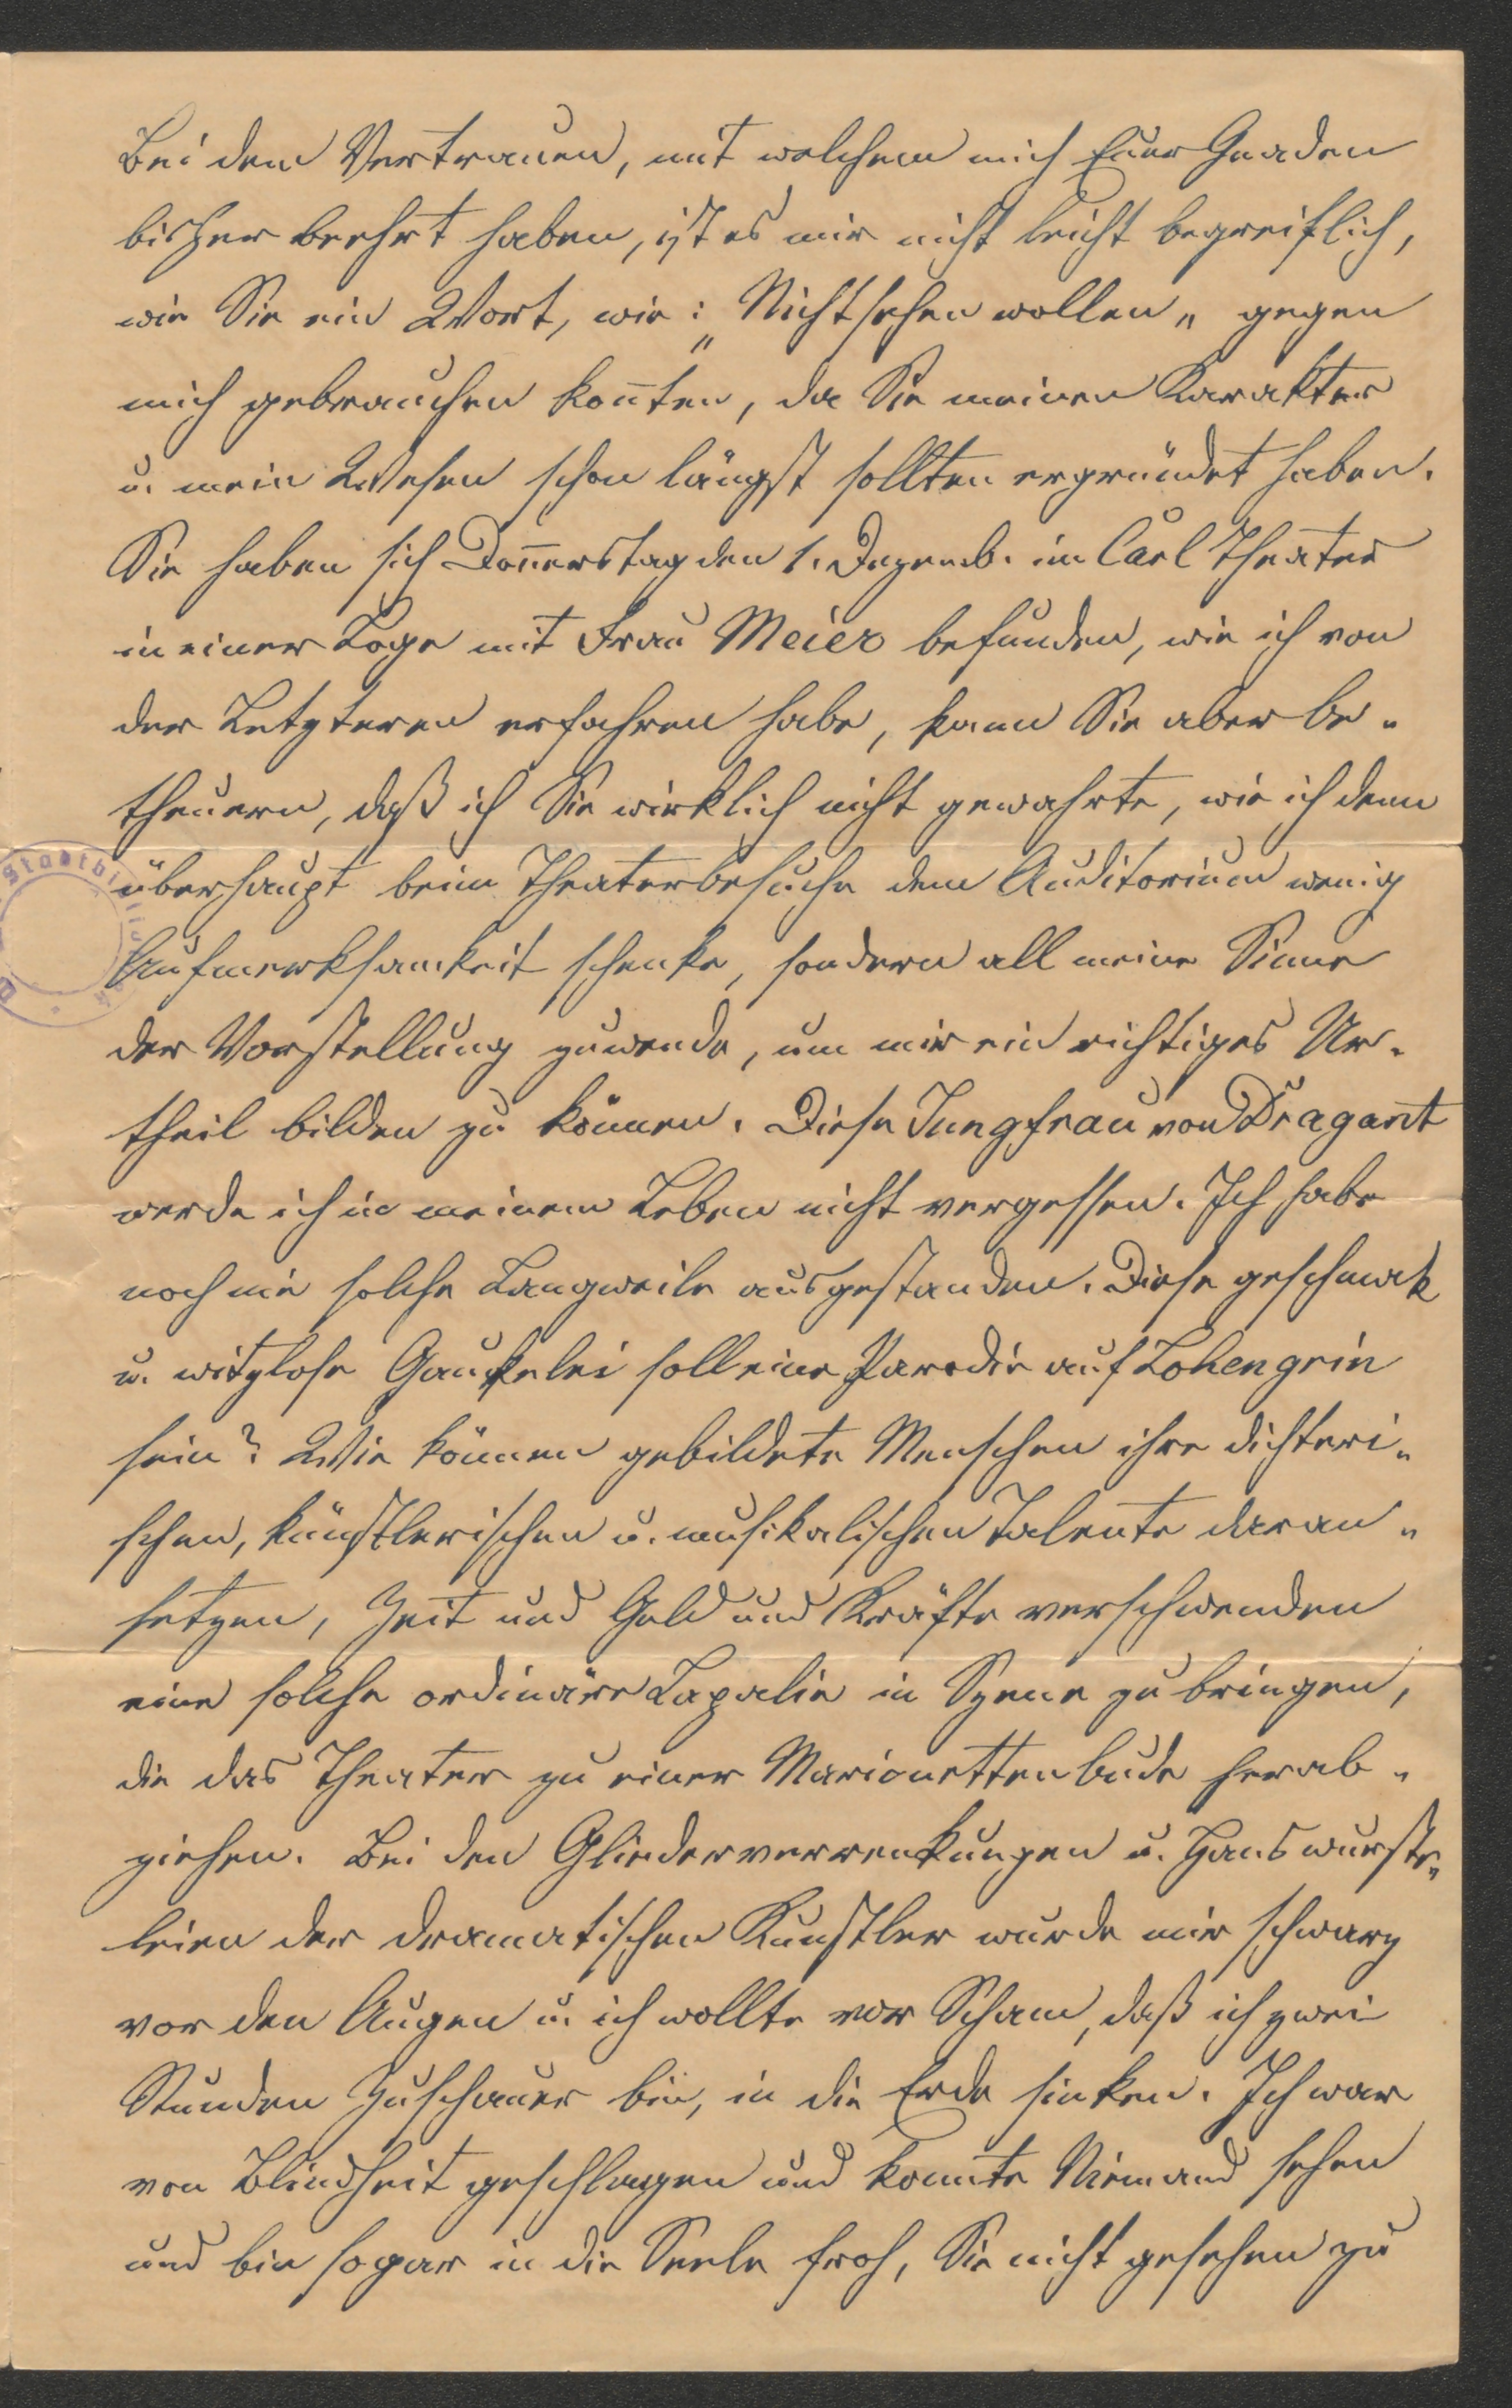 Bei dem Vertrauen, mit welchem mich Euer Gnaden
bisher beehrt haben, ist es mir nicht leicht begreiflich,
wie Sie ein Wort, wie: „Nichtsehen wollen„ gegen
mich gebrauchen kon̄ten, da Sie meinen Karakter
u. mein Wesen schon längst sollten ergründet haben.
Sie haben sich Don̄erstag den 1. Dezemb. im Carl Theater
in einer Loge mit Frau Meier befunden, wie ich von
der Letzteren erfahren habe, kann Sie aber be-
theuern, daß ich Sie wirklich nicht gewahrte, wie ich denn
überhaupt beim Theaterbesuche dem Auditorium wenig
Aufmerksamkeit schenke, sondern all meine Sinne
der Vorstellung zuwende, um mir ein richtiges Ur-
theil bilden zu können. Diese Jungfrau von Dragant
werde ich in meinem Leben nicht vergessen. Ich habe
noch nie solche Langweile ausgestanden. Diese geschmak
u. witzlose Gaukelei soll eine Parodie auf Lohengrin
sein? Wie können gebildete Menschen ihre dichteri-
schen, künstlerischen u. musikalischen Talente daran-
setzen, Zeit und Geld und Kräfte verschwenden
eine solche ordinäre Lapalie in Szene zu bringen,
die das Theater zu einer Marionettenbude herab-
ziehen. Bei den Gliederverrenkungen u. Hanswurste-
leien der dramatischen Künstler wurde mir schwarz
vor den Augen u. ich wollte vor Scham, daß ich zwei
Stunden Zuschauer bin, in die Erde sinken. Ich war
von Blindheit geschlagen und konnte Niemand sehen
und bin sogar in die Seele froh, Sie nicht gesehen zu